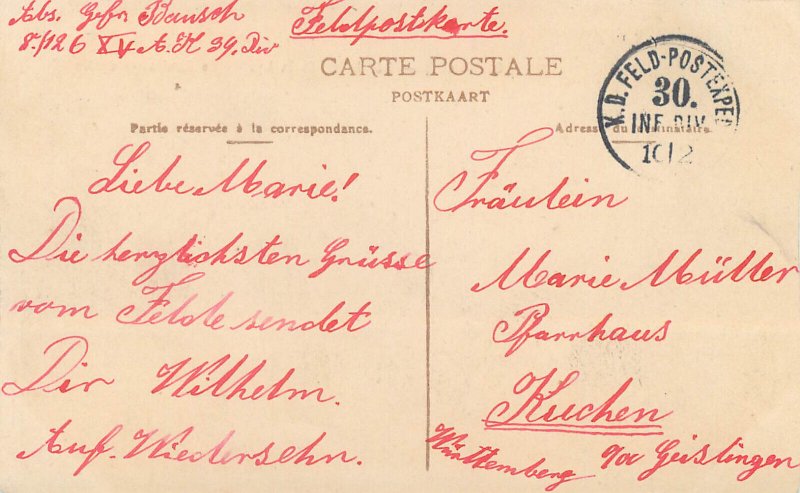 Abs. Gefr Bausch
8./126 XV A. K 39. Div
Feldpostkarte.
CARTE POSTALE
POSTKAART
K.D. FELD-POSTEXPED
30.
INF.DIV.
10 2
Partie réservée à la correspondance.
Adresse du destinataire.
Liebe Marie!
Die herzlichsten Grüsse
vom Felde sendet
Dir Wilhelm.
Auf. Wiedersehn.
Fräulein
Marie Müller
Pfarrhaus
Kuchen
Württemberg
Geislingen